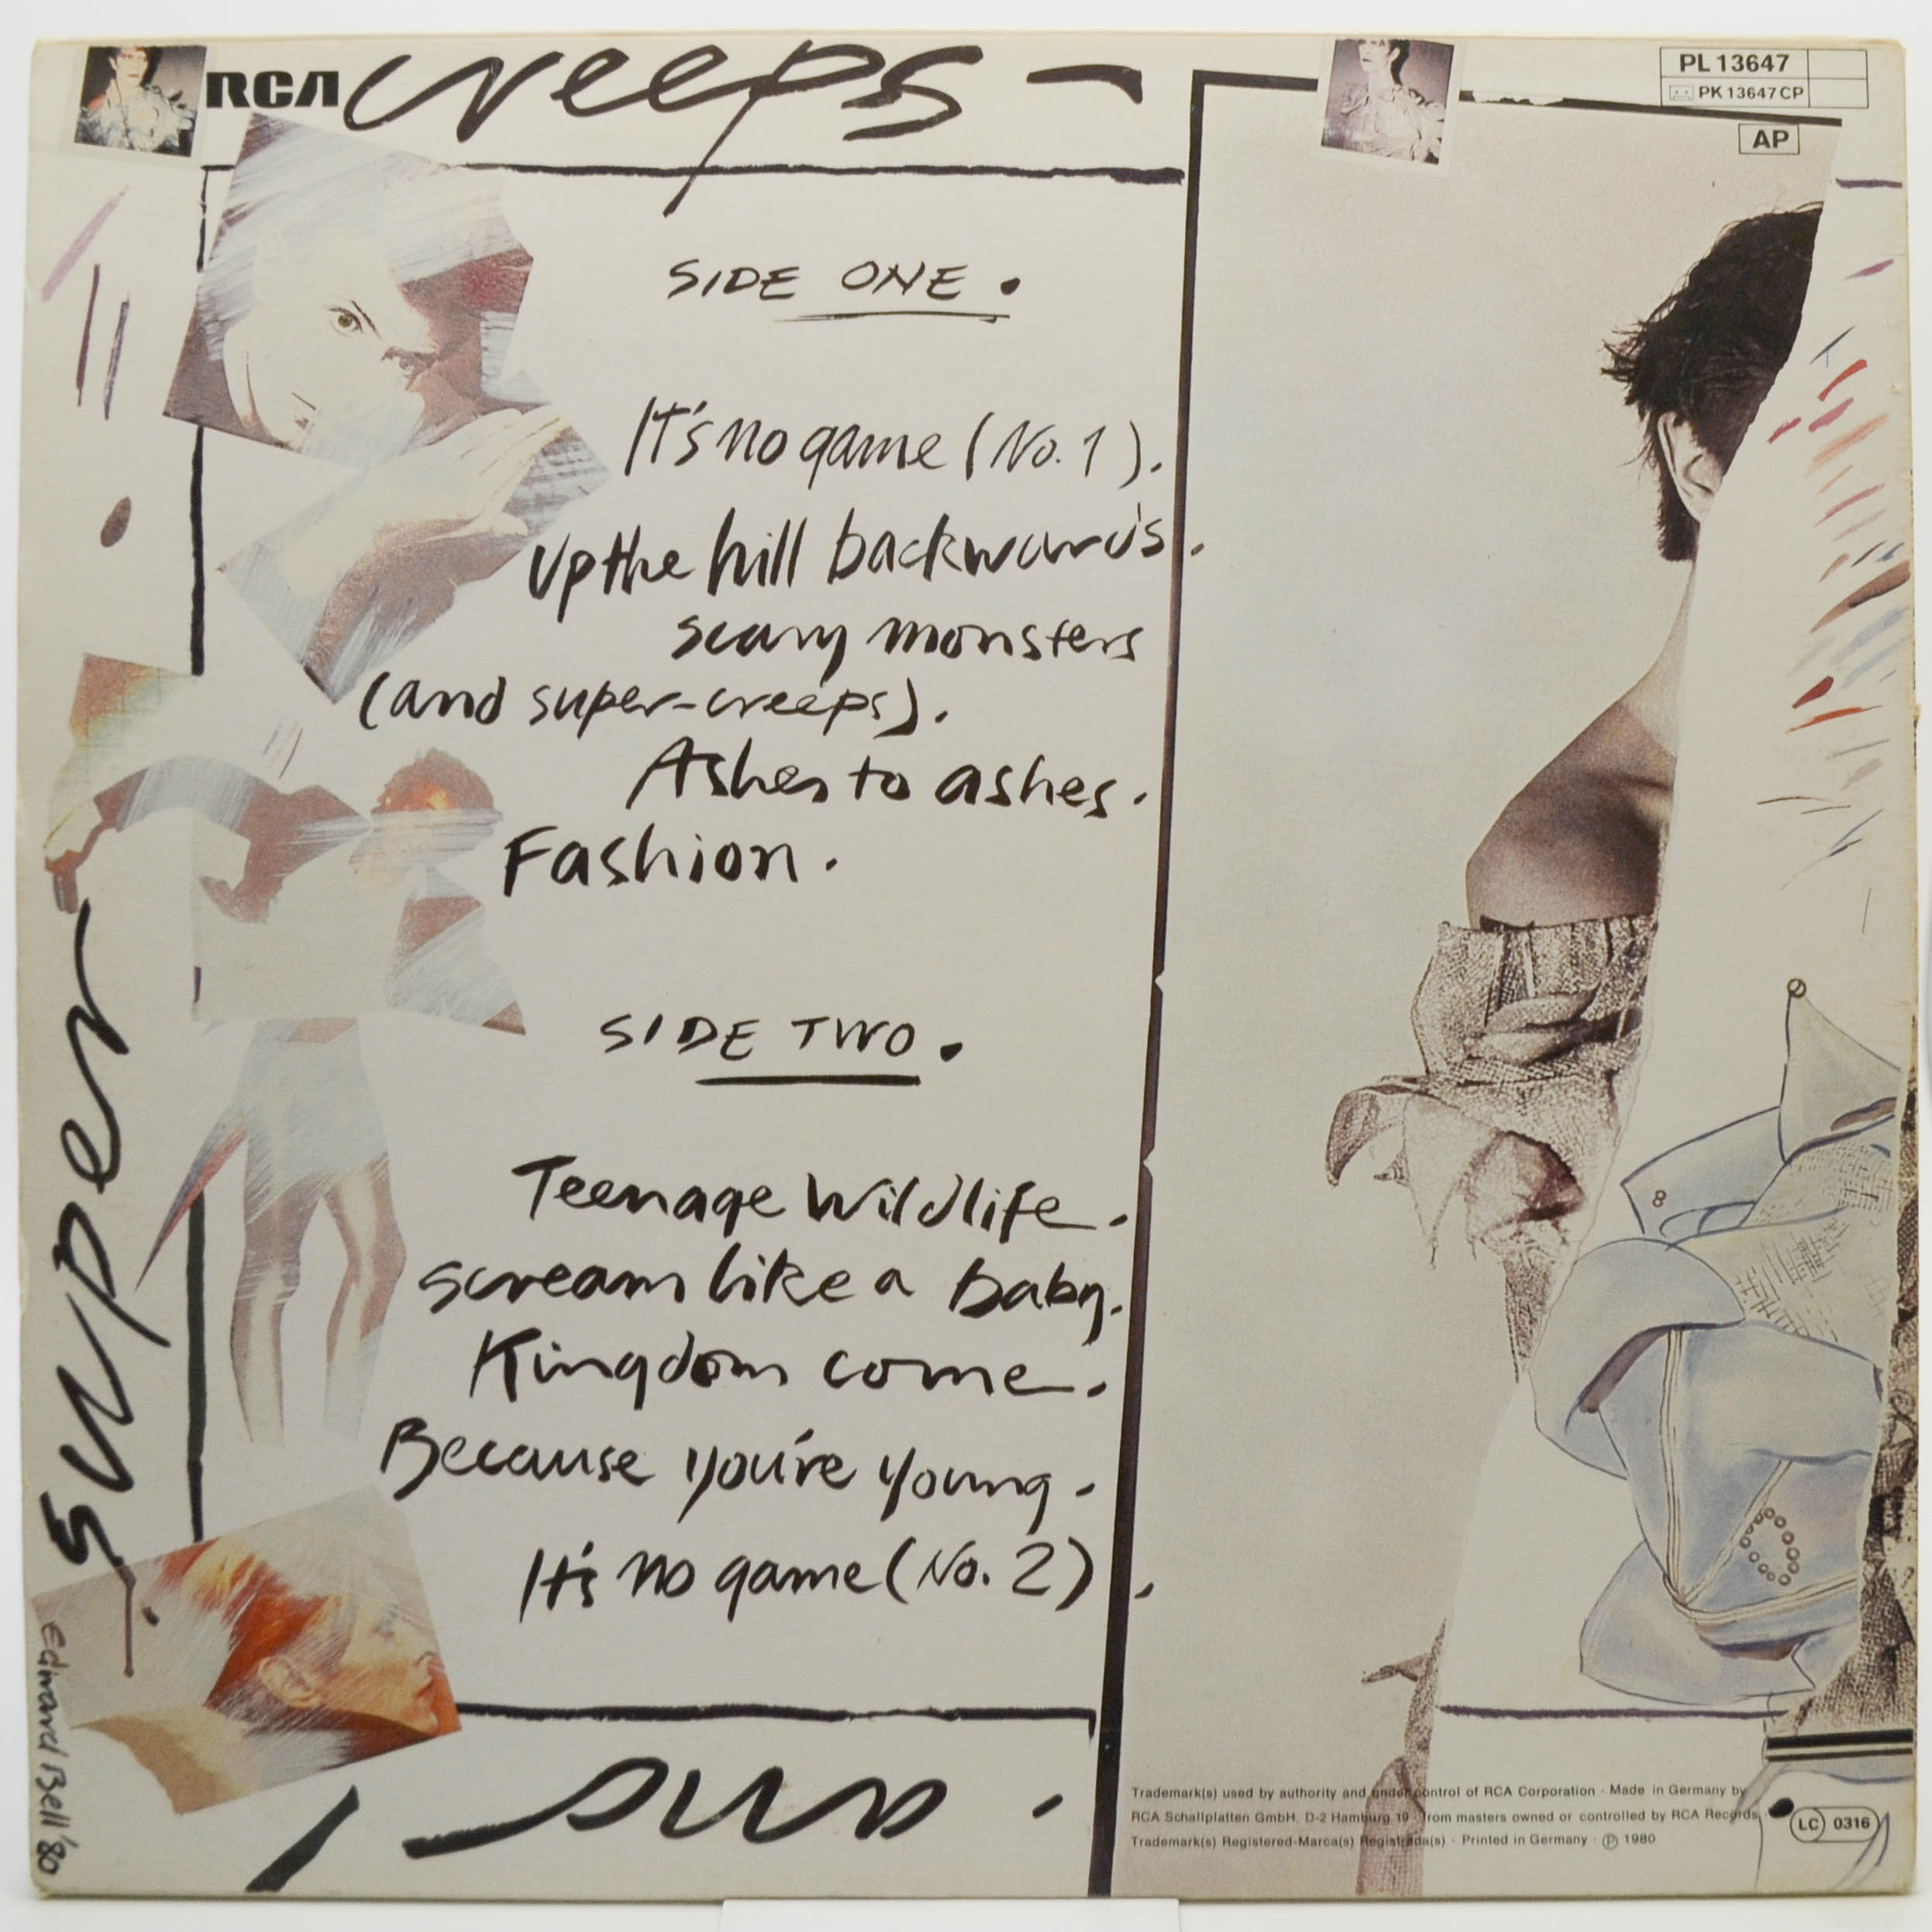 RCA creeps -
PL 13647
PK 13647 CP
AP
SIDE ONE.
It's no game (No. 1).
Up the hill backwards.
scary monsters
(and super-creeps).
Ashes to ashes.
Fashion.
SIDE TWO.
Teenage Wildlife.
scream like a baby.
Kingdom come.
Because you're young.
It's no game (No. 2).
super
Edward Bell '80
and
Trademark(s) used by authority and under control of RCA Corporation · Made in Germany by
RCA Schallplatten GmbH. D-2 Hamburg 19 · from masters owned or controlled by RCA Records ·
Trademark(s) Registered-Marca(s) Registrada(s) · Printed in Germany · Ⓟ 1980
LC 0316